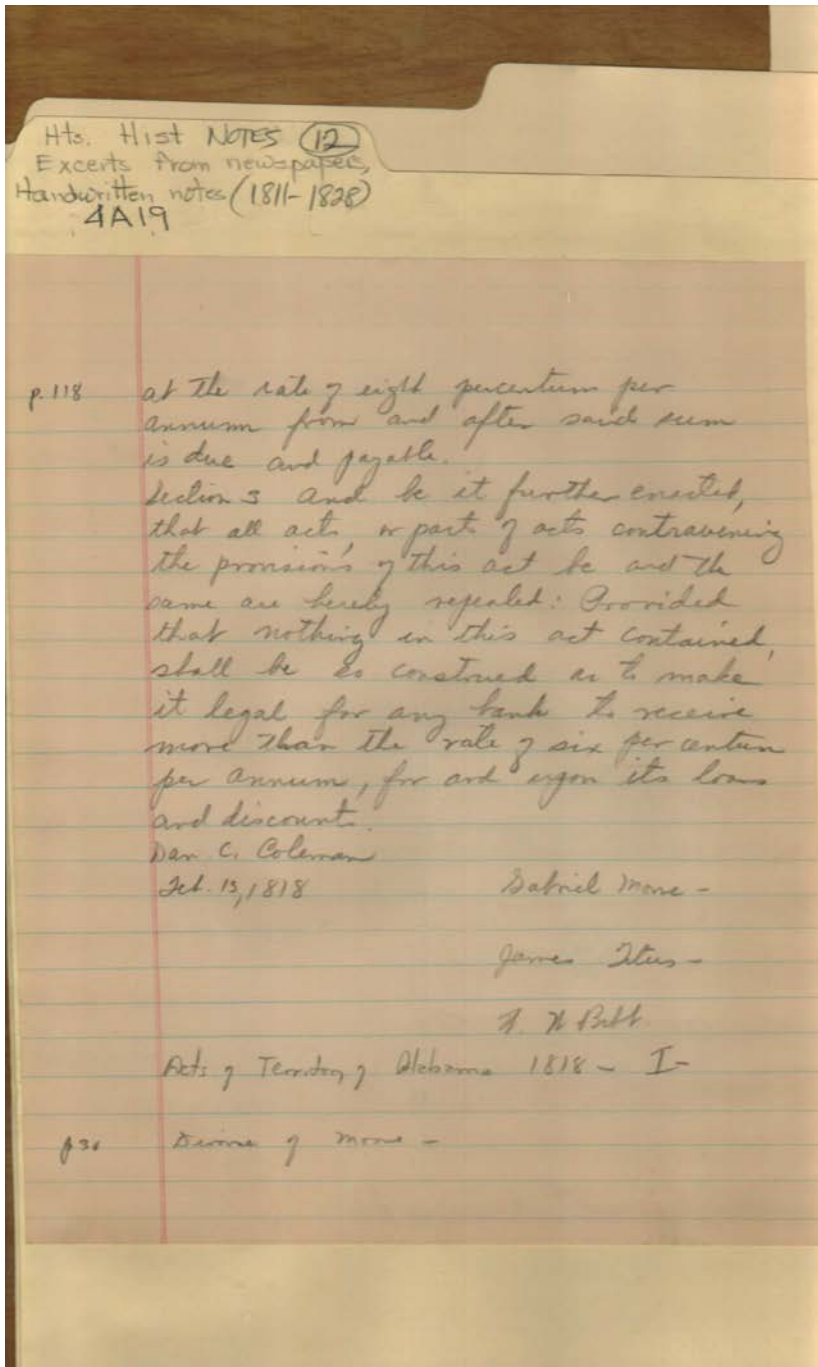 Hts. Hist NOTES (12)
Excerts from newspapers,
Handwritten notes (1811-1828)
4A19
p. 118 at the rate of eight percentum per
annum from and after said sum
is due and payable.
Section 3 and be it further enacted,
that all acts, or parts of acts contravening
the provisions of this act be and the
same are hereby repealed: Provided
that nothing in this act contained,
shall be so construed as to make
it legal for any bank to receive
more than the rate of six per centum
per annum, for and upon its loans
and discounts.
Dan C. Coleman
Feb. 13, 1818 Gabriel Moore -
James Titus -
Bibb
Acts of Territory of Alabama 1818 - I -
p 36 Divorce of Moore -